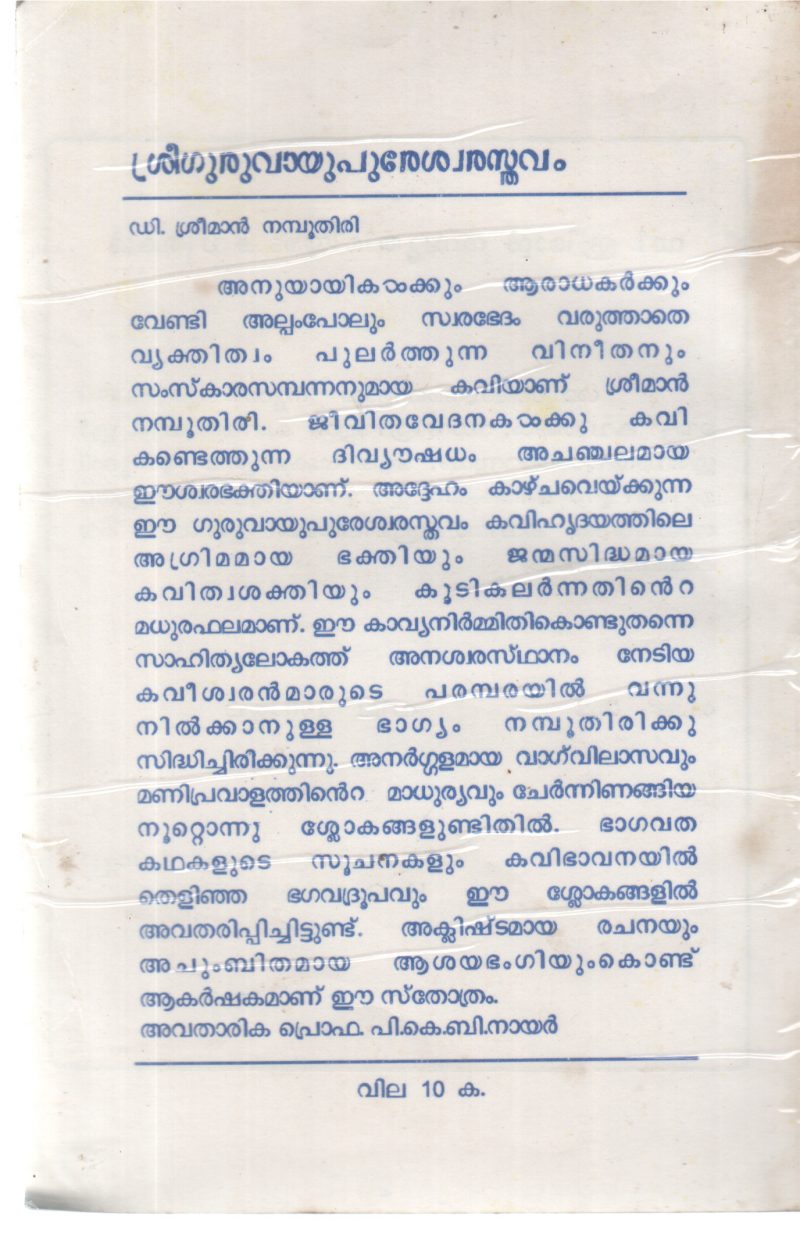 ശ്രീഗുരുവായുപുരേശ്വരസ്തവം
ഡി. ശ്രീമാൻ നമ്പൂതിരി
അനുയായികൾക്കും ആരാധകർക്കും
വേണ്ടി അല്പംപോലും സ്വരഭേദം വരുത്താതെ
വ്യക്തിത്വം പുലർത്തുന്ന വിനീതനും
സംസ്കാരസമ്പന്നനുമായ കവിയാണ് ശ്രീമാൻ
നമ്പൂതിരി. ജീവിതവേദനകൾക്കു കവി
കണ്ടെത്തുന്ന ദിവ്യൗഷധം അചഞ്ചലമായ
ഈശ്വരഭക്തിയാണ്. അദ്ദേഹം കാഴ്ചവെയ്ക്കുന്ന
ഈ ഗുരുവായുപുരേശ്വരസ്തവം കവിഹൃദയത്തിലെ
അഗ്രിമമായ ഭക്തിയും ജന്മസിദ്ധമായ
കവിത്വശക്തിയും കൂടികലർന്നതിൻെറ
മധുരഫലമാണ്. ഈ കാവ്യനിർമ്മിതികൊണ്ടുതന്നെ
സാഹിത്യലോകത്ത് അനശ്വരസ്ഥാനം നേടിയ
കവീശ്വരൻമാരുടെ പരമ്പരയിൽ വന്നു
നിൽക്കാനുള്ള ഭാഗ്യം നമ്പൂതിരിക്കു
സിദ്ധിച്ചിരിക്കുന്നു. അനർഗ്ഗളമായ വാഗ്വിലാസവും
മണിപ്രവാളത്തിൻെറ മാധുര്യവും ചേർന്നിണങ്ങിയ
നൂറ്റൊന്നു ശ്ലോകങ്ങളുണ്ടിതിൽ. ഭാഗവത
കഥകളുടെ സൂചനകളും കവിഭാവനയിൽ
തെളിഞ്ഞ ഭഗവദ്രൂപവും ഈ ശ്ലോകങ്ങളിൽ
അവതരിപ്പിച്ചിട്ടുണ്ട്. അക്ലിഷ്ടമായ രചനയും
അചുംബിതമായ ആശയഭംഗിയുംകൊണ്ട്
ആകർഷകമാണ് ഈ സ്തോത്രം.
അവതാരിക പ്രൊഫ. പി.കെ.ബി.നായർ
വില 10 ക.